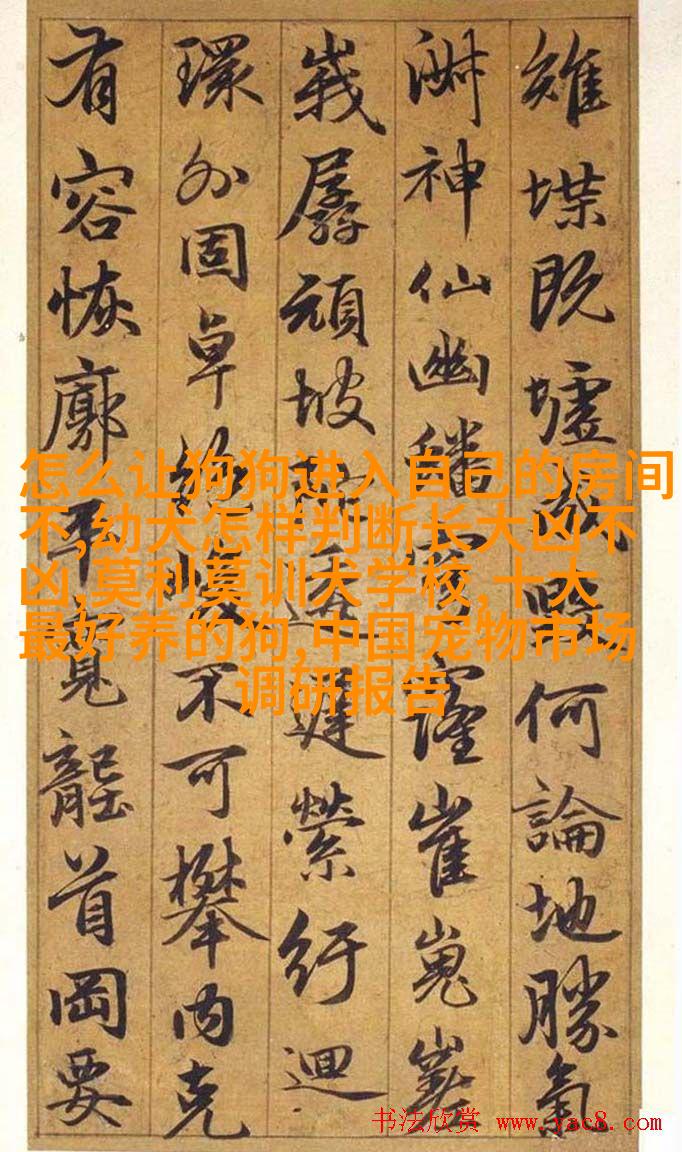 雉堞既墟 何論地勝氣
淋神仙幽 崔嵬
峩孱頑坡 遲縈紆迴
環外固卓絶峻不可攀内克
有容恢廓平寬 首岡要
怎么让狗狗进入自己的房间
不,幼犬怎样判断长大凶不
凶,莫利莫训犬学校,十大
最好养的狗,中国宠物市场
调研报告
书法欣赏 www.yac8.com